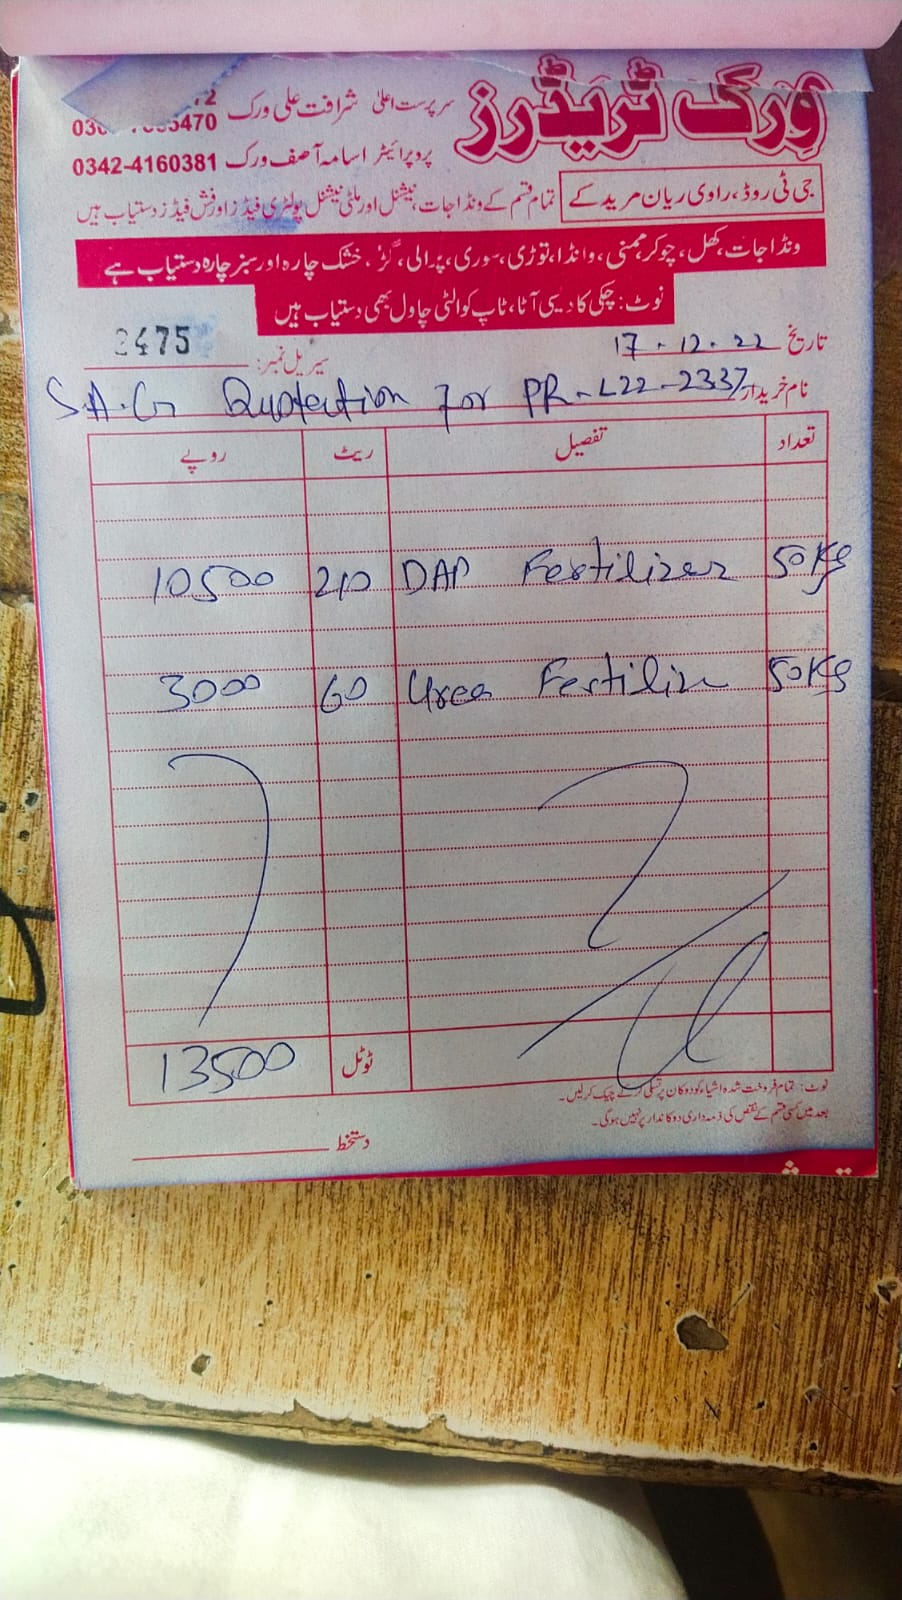 ورک ٹریڈرز
سرپرست اعلیٰ شرافت علی ورک
پروپرائیٹر اسامہ آصف ورک 0342-4160381
جی ٹی روڈ، راوی ریان مریدکے
تمام قسم کے ونڈا جات، نیشنل اور ملٹی نیشنل پولٹری فیڈز اور فش فیڈز دستیاب ہیں
ونڈا جات، کھل، چوکر، ممنی، وانڈا، توڑی، سوری، پرالی، گڑ، خشک چارہ اور سبز چارہ دستیاب ہے
نوٹ: چکی کا دیسی آٹا، ٹاپ کوالٹی چاول بھی دستیاب ہیں
تاریخ 17-12-22 سیریل نمبر: 2475
نام خریدار S.A.G Quotection For PR-L22-2337
تعداد تفصیل ریٹ روپے
50Kg DAP Fertilizer 210 10500
50Kg Urea Fertilize 60 3000
ٹوٹل 13500
نوٹ: تمام فروخت شدہ اشیاء کو دوکان پر تسلی کر کے چیک کر لیں۔
بعد میں کسی قسم کے نقص کی ذمہ داری دوکاندار پر نہیں ہوگی۔
دستخط